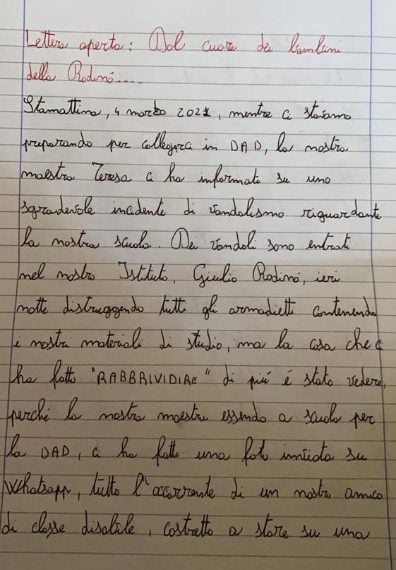 Lettera aperta: Dal cuore dei bambini
della Rodinó.....
Stamattina, 4 marzo 2021, mentre ci stavamo
preparando per collegarci in DAD, la nostra
maestra Teresa ci ha informato su uno
sgradevole incidente di vandalismo riguardante
la nostra scuola. Dei vandali sono entrati
nel nostro Istituto, Giulio Rodinó, ieri
notte distruggendo tutti gli armadietti contenendo
i nostri materiali di studio, ma la cosa che ci
ha fatto "RABBRIVIDIRE" di piú é stato vedere,
perché la nostra maestra essendo a scuola per
la DAD, ci ha fatto una foto inviata su
Whatsapp, tutto l'occorrente di un nostro amico
di classe disabile, costretto a stare su una